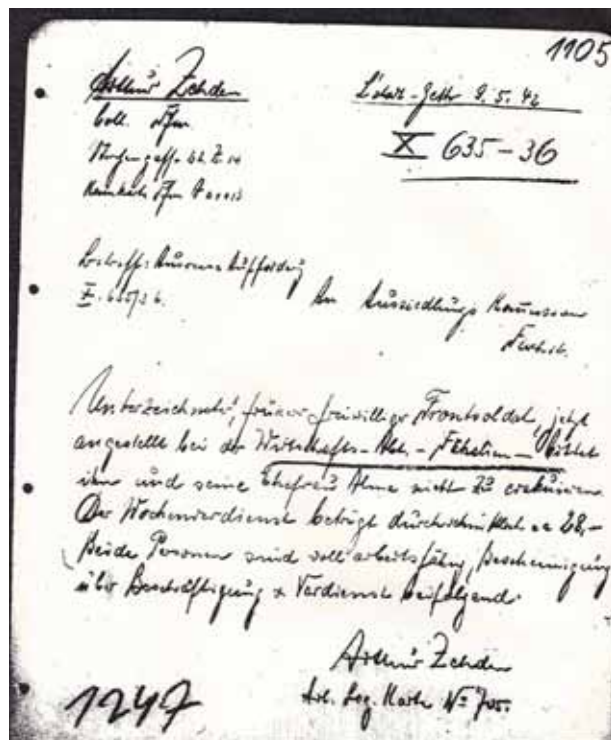 1105
Arthur Zehden
L'stadt-Getto 9. 5. 42
Coll.
X 635-36
Betreff: Ausreise Aufforderung
An Aussiedlungs Kommission
Unterzeichneter, früher freiwilliger Frontsoldat, jetzt
angestellt bei der Wirtschafts-Abt. - Fäkalien - bittet
ihn und seine Ehefrau Alma nicht zu evakuieren
Der Wochenverdienst beträgt durchschnittlich ca 28,-
Beide Personen sind voll arbeitsfähig, Bescheinigung
über Beschäftigung & Verdienst beifolgend.
Arthur Zehden
1247